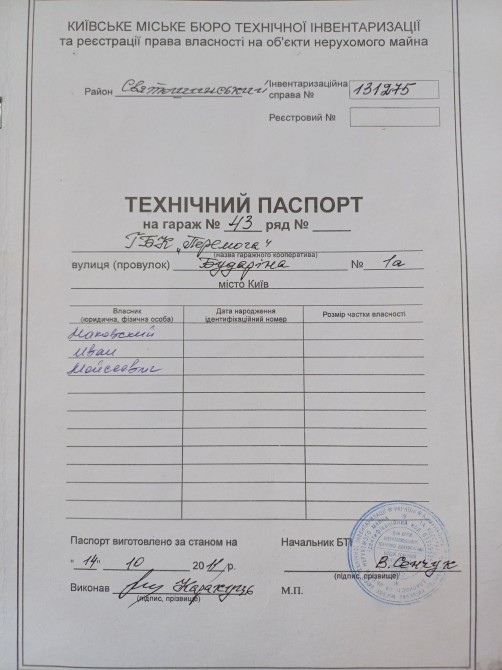 КИЇВСЬКЕ МІСЬКЕ БЮРО ТЕХНІЧНОЇ ІНВЕНТАРИЗАЦІЇ
та реєстрації права власності на об'єкти нерухомого майна
Район Святошинський Інвентаризаційна справа № 131275
Реєстровий №
ТЕХНІЧНИЙ ПАСПОРТ
на гараж № 43 ряд №
ГБК „Перемога"
(назва гаражного кооператива)
вулиця (провулок) Бударіна № 1а
місто Київ
Власник (юридична, фізична особа) Дата народження ідентифікаційний номер Розмір частки власності
Маковский
Иван
Мойсеевич
Паспорт виготовлено за станом на Начальник БТІ
"14" 10 2011 р. В. Сенчук
(підпис, прізвище)
Виконав Каракуць М.П.
(підпис, прізвище)